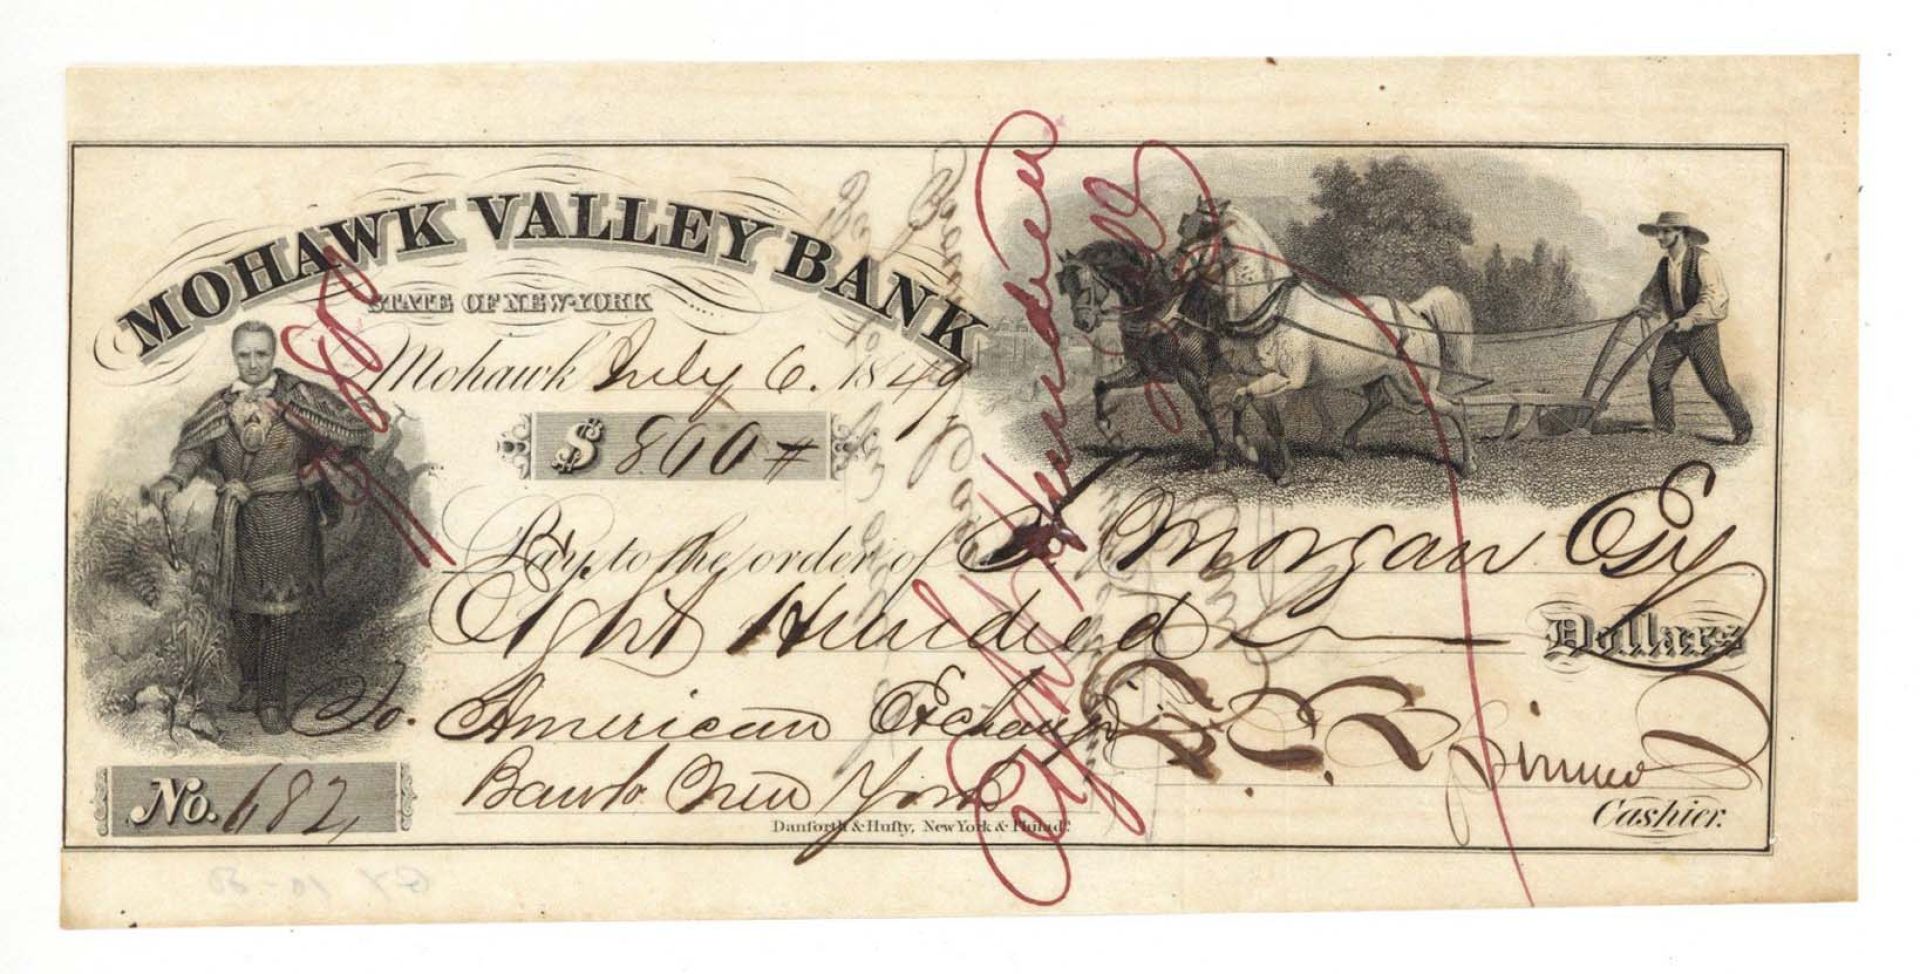 MOHAWK VALLEY BANK
STATE OF NEW-YORK
Mohawk July 6. 1849
$ 800 #
Pay to the order of Morgan Esq
Eight Hundred Dollars
To. American Exchange
Bank New York
Cashier.
No. 682,
Danforth & Hufty, New York & Philad?
$ 800
Eight Hundred